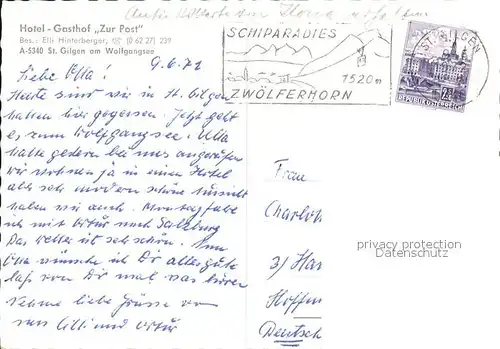 Hotel - Gasthof „Zur Post"
Bes.: Elli Hinterberger, ☏ (0 62 27) 239
A-5340 St. Gilgen am Wolfgangsee
SCHIPARADIES
1520 m
ZWÖLFERHORN
ST. GILGEN
REPUBLIK ÖSTERREICH
9.6.72
Liebe
Heute sind wir in St. Gilgen
haben hier gegessen. Jetzt geht
es zum Wolfgangsee.
hatte gestern bei uns angerufen
wir wohnen ja in einem Hotel
sehr modern schöne Aussicht
haben wir auch. Montag
ich mit Artur nach Salzburg
Das Wetter ist sehr schön. Nun
wünsche ich Dir alles gute
laß von Dir mal was hören
liebe Grüsse von
uns Cilli und Artur
Frau
Charlott
3) Han
Hoffm
Deutsch
privacy protection
Datenschutz